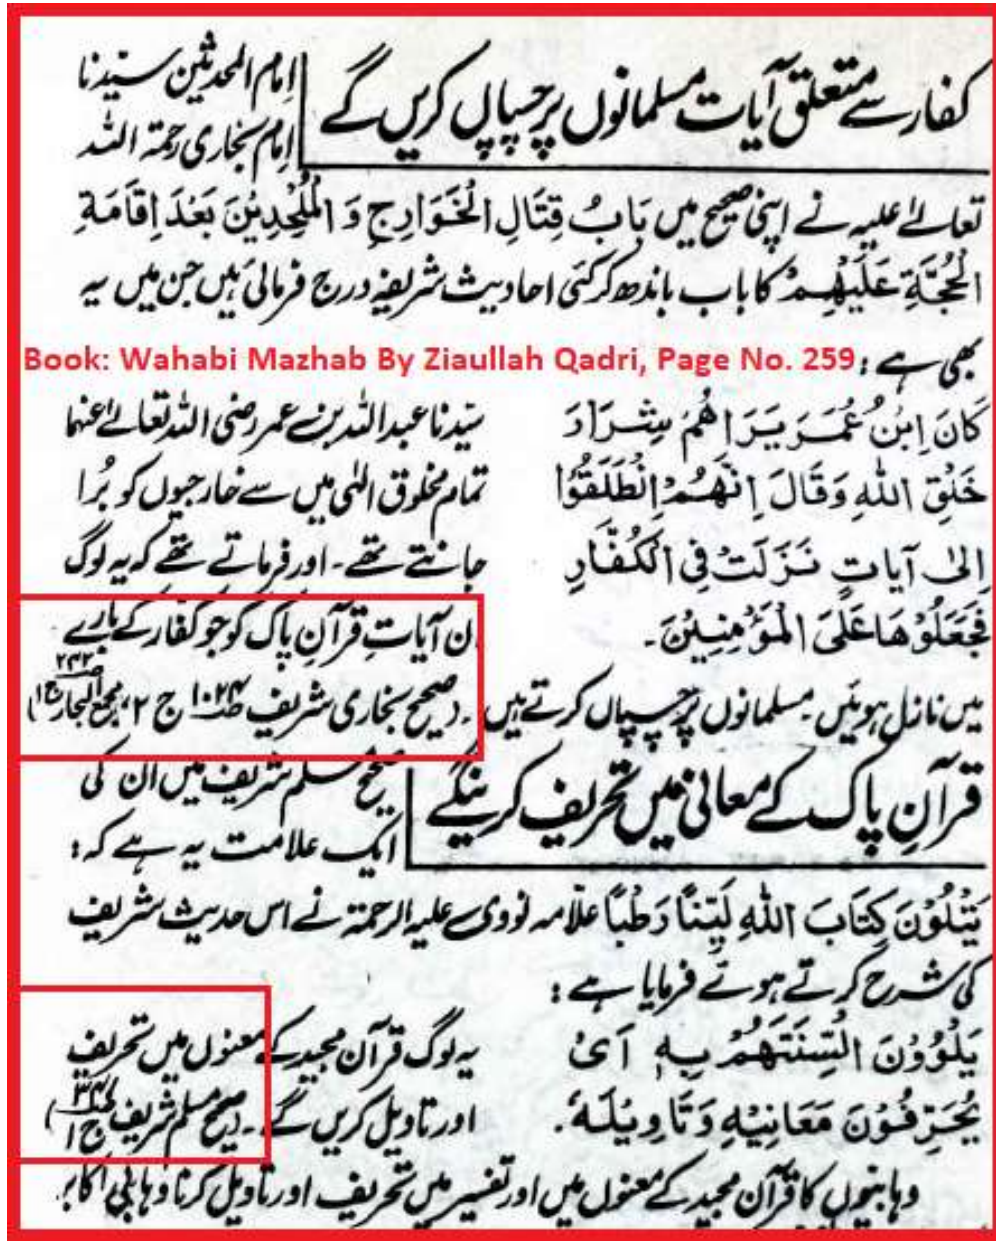 کفار سے متعلق آیات مسلمانوں پر چسپاں کریں گے
اِمام المحدثین سیّدنا
اِمام بخاری رحمۃ اللہ
تعالےٰ علیہ نے اپنی صحیح میں بَابُ قِتَالِ الْخَوَارِجِ وَ الْمُلْحِدِیْنَ بَعْدَ اِقَامَۃِ
الْحُجَّۃِ عَلَیْہِمْ کا باب باندھ کر کئی احادیث شریفہ درج فرمائی ہیں جن میں یہ
بھی ہے :
Book: Wahabi Mazhab By Ziaullah Qadri, Page No. 259
کَانَ ابْنُ عُمَرَ یَرَاهُمْ شِرَارَ
خَلْقِ اللهِ وَقَالَ اِنَّهُمْ انْطَلَقُوْا
اِلیٰ آیاتٍ نَزَلَتْ فِی الْکُفَّارِ
فَجَعَلُوْهَا عَلَی الْمُؤْمِنِیْنَ۔
سیّدنا عبداللہ بن عمر رضی اللہ تعالےٰ عنہما
تمام مخلوق الٰہی میں سے خارجیوں کو بُرا
جانتے تھے۔ اور فرماتے تھے کہ یہ لوگ
ان آیاتِ قرآنِ پاک کو جو کفار کے بارے
میں نازل ہوئیں۔ مسلمانوں پر چسپاں کرتے ہیں۔ (صحیح بخاری شریف ص۱۰۲۴ ج ۲، مجمع البحار ص۲۴۲ ج۱)
قرآنِ پاک کے معانی میں تحریف کرینگے
صحیح مسلم شریف میں ان کی
ایک علامت یہ ہے کہ :
یَتْلُوْنَ کِتَابَ اللهِ لَیِّنًا رَطْبًا علّامہ نووی علیہ الرحمۃ نے اس حدیث شریف
کی شرح کرتے ہوئے فرمایا ہے :
یَلْوُوْنَ اَلْسِنَتَهُمْ بِهٖ اَیْ
یُحَرِّفُوْنَ مَعَانِیْهِ وَتَاوِیْلَهٗ۔
یہ لوگ قرآن مجید کے معنوں میں تحریف
اور تاویل کریں گے۔ (صحیح مسلم شریف ج۱)
وہابیوں کا قرآن مجید کے معنوں میں اور تفسیر میں تحریف اور تاویل کرنا وہابی اکابر